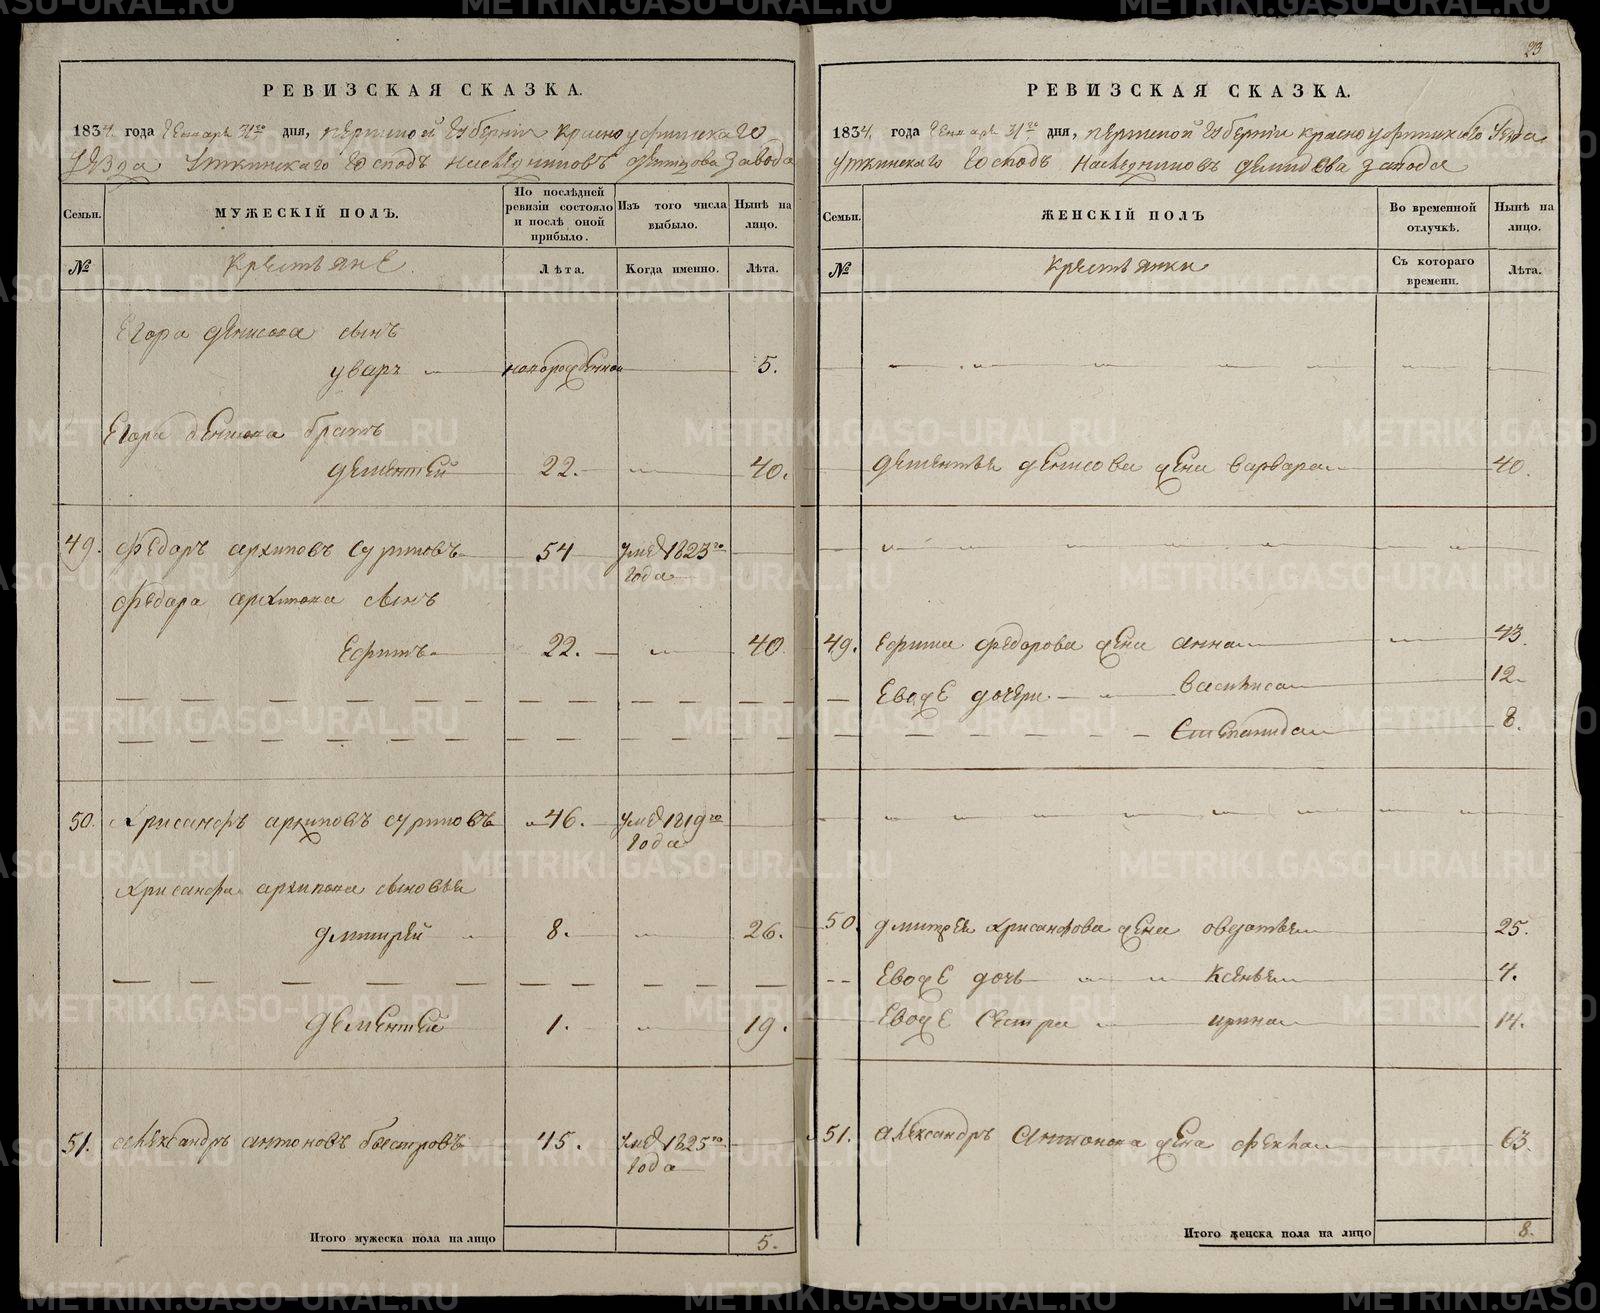 РЕВИЗСКАЯ СКАЗКА.
1834. года Генваря 31го дня, Пермской Губернїи Красноуфимскаго
Уѣзда Уткинскаго Господъ Наслѣдниковъ Демидова Завода
Семьи.
МУЖЕСКІЙ ПОЛЪ.
По послѣдней ревизіи состояло и послѣ оной прибыло.
Изъ того числа выбыло.
Нынѣ на лицо.
№
Крестьяне
Лѣта.
Когда именно.
Лѣта.
Егора Денисова сынъ
Уваръ новорожденной 5.
Егора Денисова братъ
Дементей 22. 40.
49. Федоръ Архиповъ 54 Уме 1823го
года
Федора Архипова сынъ
Ефимъ 22. 40
50. Хрисанфъ Архиповъ 46. Уме 1819го
года
Хрисанфа Архипова сыновья
Дмитрей 8. 26.
Дементей 1. 19.
51. Александръ Антоновъ Быстровъ 45. Уме 1825го
года
Итого мужеска пола на лицо 5.
23
РЕВИЗСКАЯ СКАЗКА.
1834. года Генваря 31го дня, Пермской Губернїи Красноуфимскаго Уезда
Уткинскаго Господъ Наследниковъ Демидова Завода
Семьи.
ЖЕНСКІЙ ПОЛЪ
Во временной отлучкѣ.
Нынѣ на лицо.
№
Крестьянки
Съ котораго времени.
Лѣта.
Дементья Денисова жена Варвара 40.
49. Ефима Федорова жена Анна 43
Евоже дочери Василиса 12
Степанида 8.
50. Дмитрея Хрисанфова жена Овдотья 25.
Евоже дочь Ксенья 4.
Евоже сестра Ирина 14.
51. Александръ Антонова жена Фекла 63.
Итого женска пола на лицо 8.
METRIKI.GASO-URAL.RU